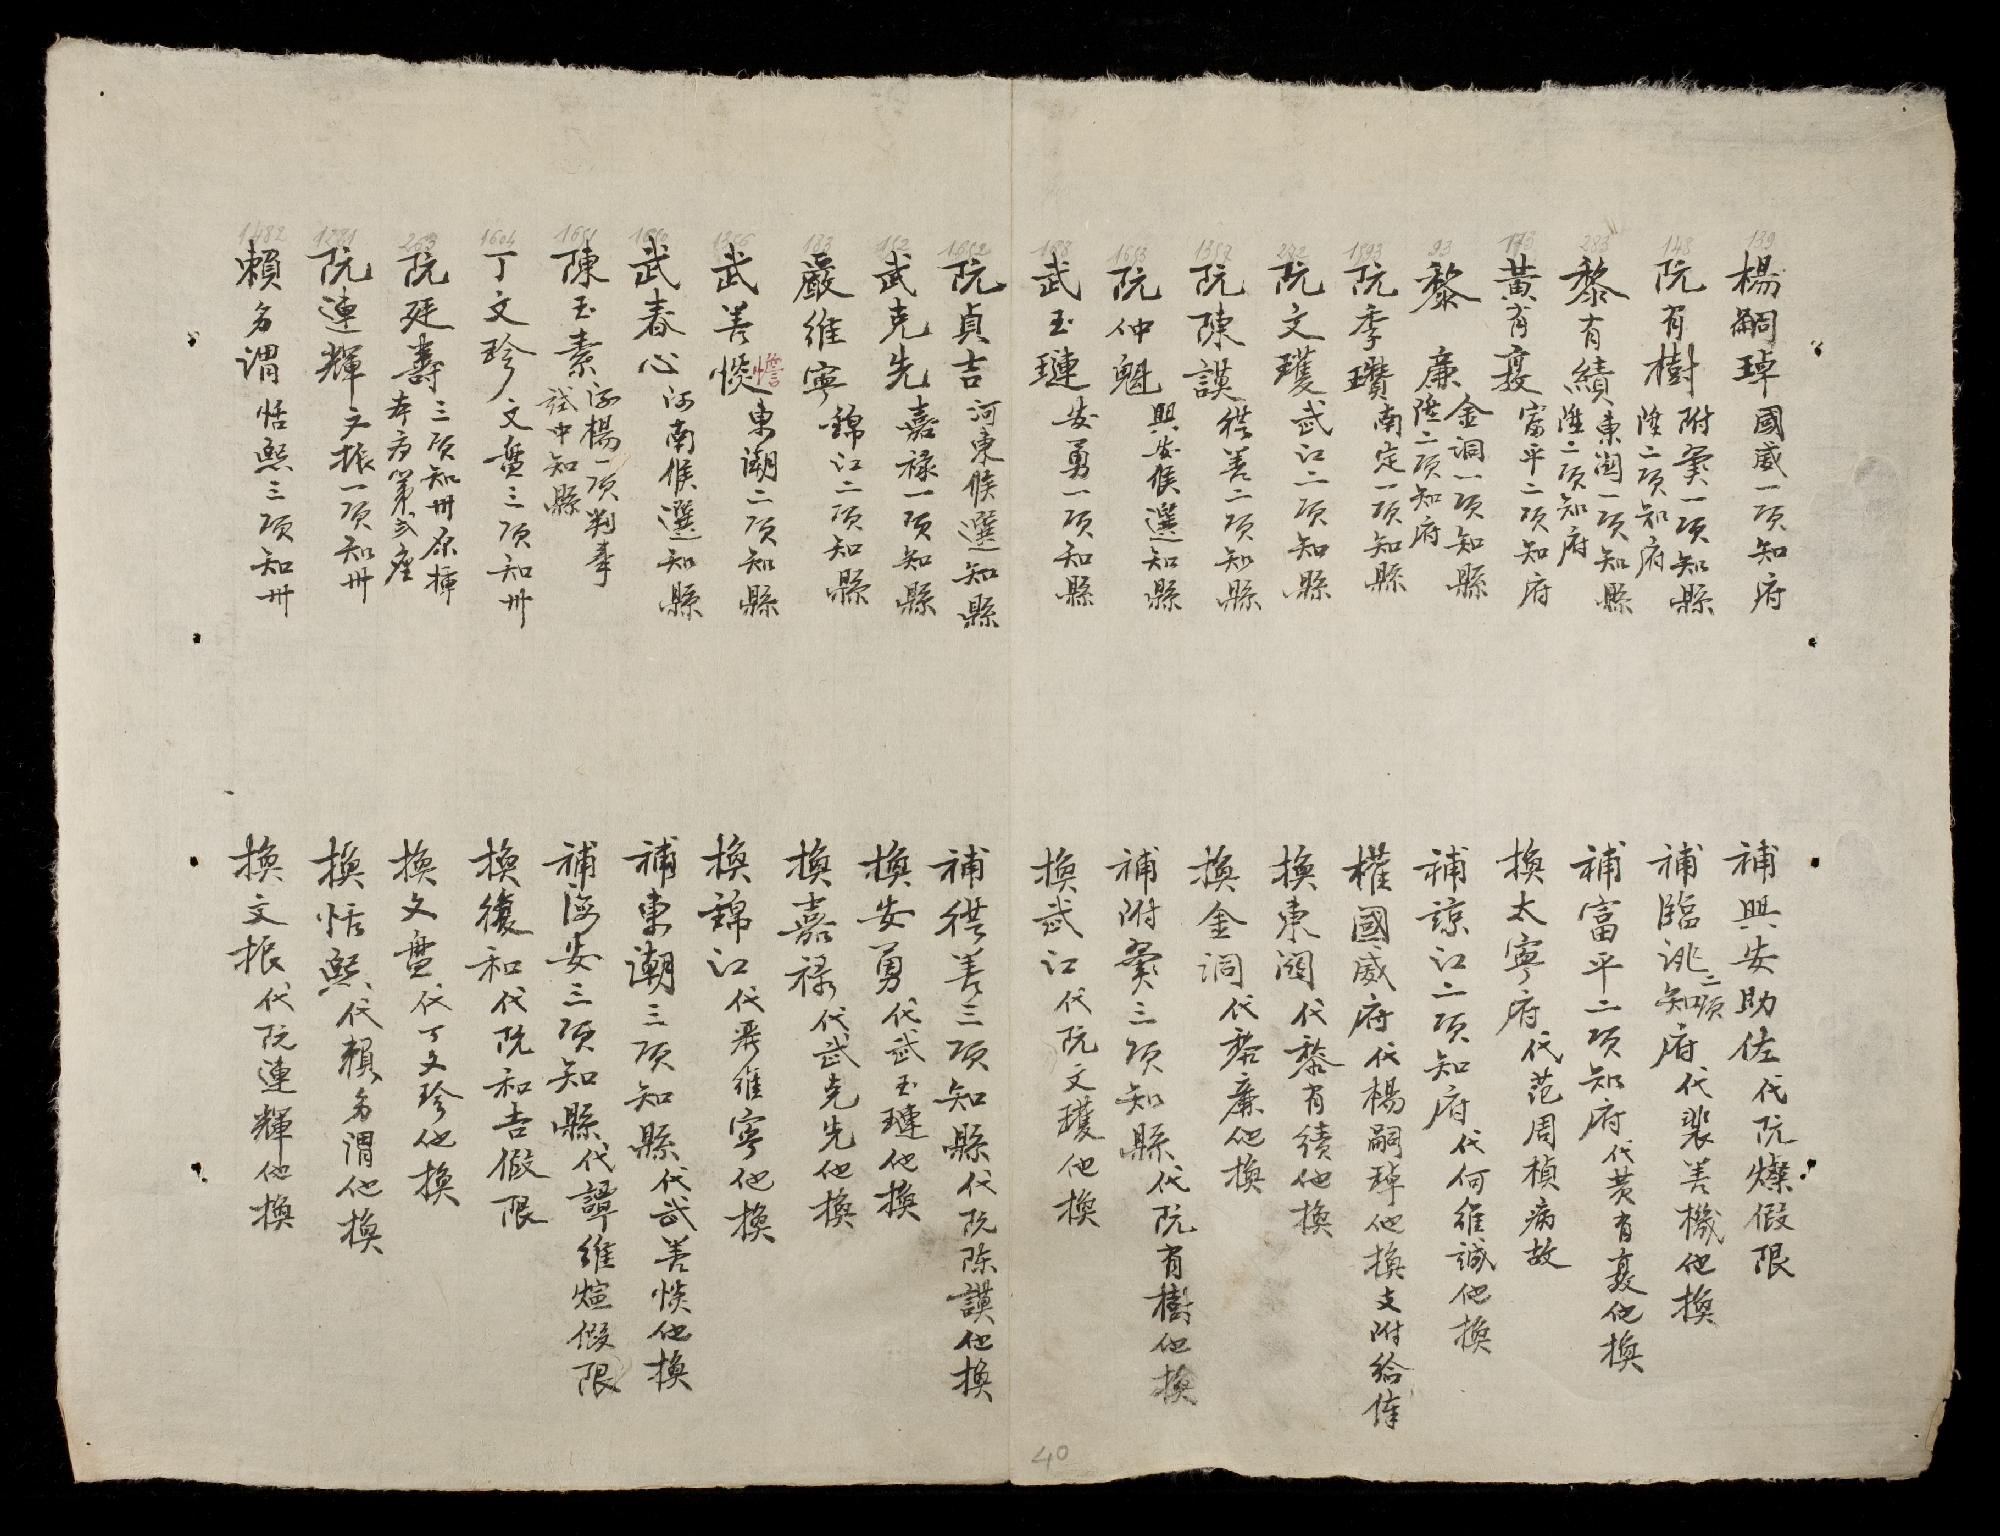 139
楊嗣琸國威一項知府
補興安助佐代阮燦假限
148
阮有樹附寨一項知縣
陞二項知府
補臨洮二項知府代裴善機他換
283
黎有績東關一項知縣
陞二項知府
補富平二項知府代黄有爰他換
173
黃有爰富平二項知府
換太寧府代范周楨病故
93
黎廉金洞一項知縣
陞二項知府
補諒江二項知府代何維誠他換
1593
阮季瓚南定一項知縣
權國威府代楊嗣琸他換支附給俸
272
阮文瓁武江二項知縣
換東關代黎有績他換
1357
阮陳謨僊善二項知縣
換金洞代黎廉他換
1653
阮仲魁興安候選知縣
補附寨三項知縣代阮有樹他換
188
武玉璉安勇一項知縣
換武江代阮文瓁他換
1652
阮貞吉河東候選知縣
補僊善三項知縣代阮陳謨他換
152
武克先嘉祿一項知縣
換安勇代武玉璉他換
183
嚴維寧錦江二項知縣
換嘉祿代武克先他換
武善惔東潮二項知縣
換錦江代嚴維寧他換
武春心河南候選知縣
補東潮三項知縣代武善惔他換
1651
陳玉素海楊一項判事
試中知縣
補海安三項知縣代譚維煊假限
1604
丁文珍文盤三項知州
換復和代阮和吉假限
263
阮廷壽三項知州原揷
本府第弍座
換文盤代丁文珍他換
1281
阮連輝文振一項知州
換恬熙代賴多謂他換
1482
賴多謂恬熙三項知州
換文振代阮連輝他換
40